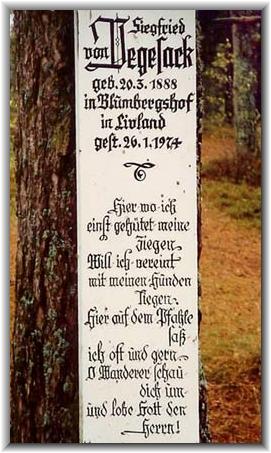 Siegfried
von Vegesack
geb. 20.3.1888
in Blumbergshof
in Livland
gest. 26.1.1974
Hier wo ich
einst gehütet meine
Ziegen
Will ich vereint
mit meinen Hunden
liegen.
Hier auf dem Pfahle
saß
ich oft und gern
O Wanderer schau
dich um
und lobe Gott den
Herrn!